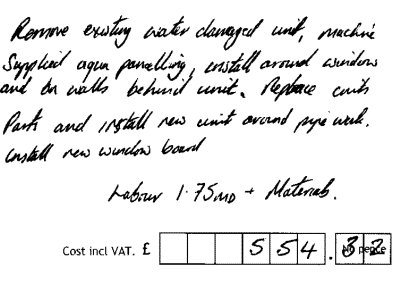 Remove existing water damaged unit, machine
Supplied aqua panelling, install around window
and on walls behind unit. Replace
Park and install new unit around pipe work.
install new window board
Labour 1.75MD + Materials.
Cost incl VAT. £ 554.32